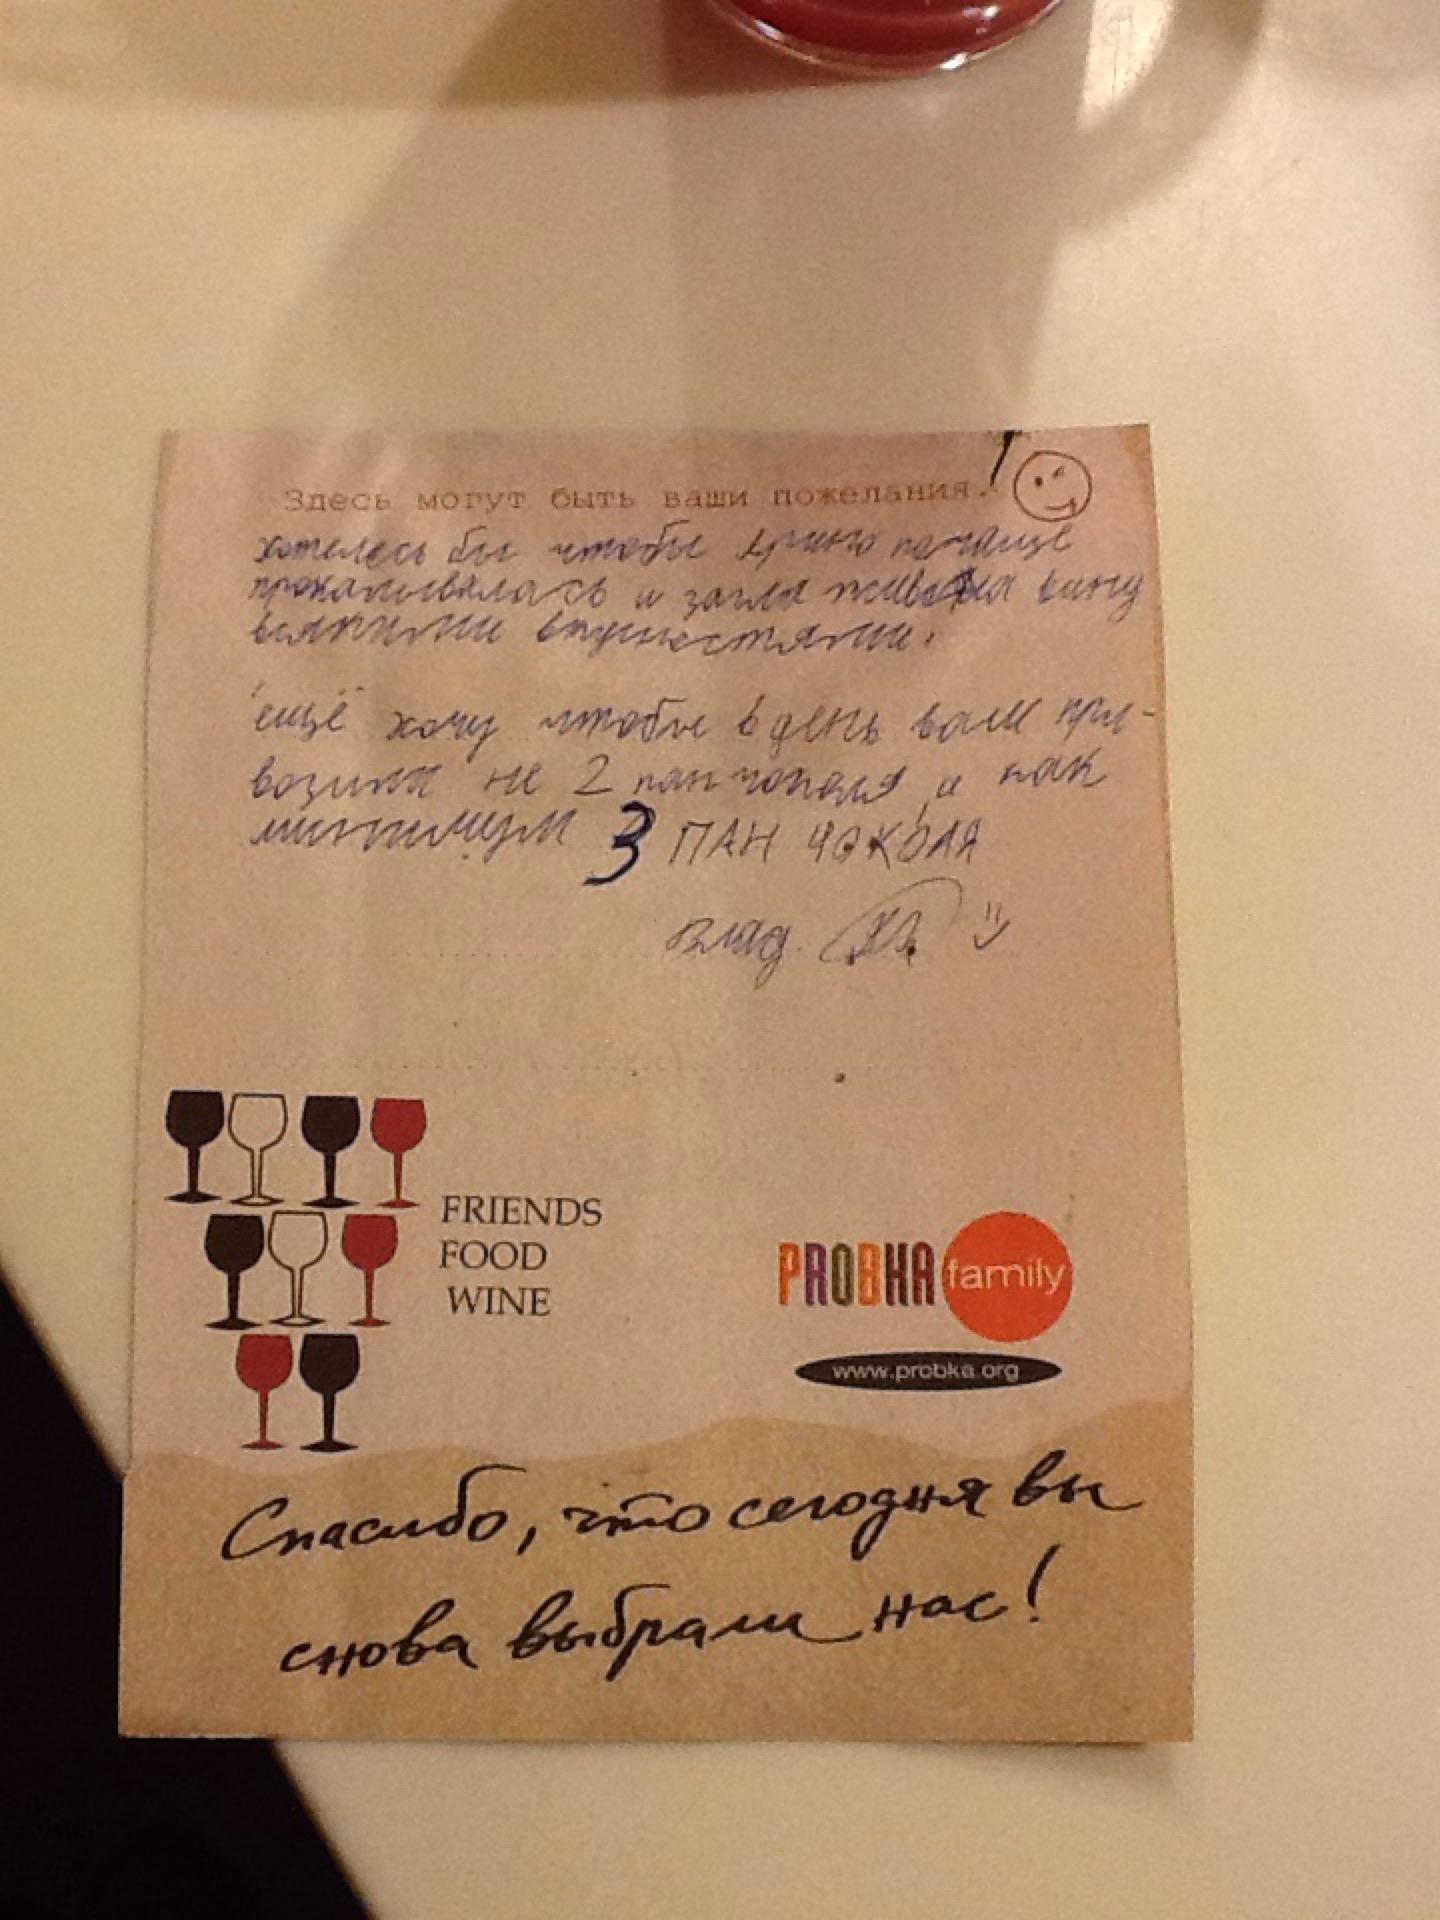 Здесь могут быть ваши пожелания.
хотелось бы чтобы почаще
и вину
вкусностями.
ещё хочу чтобы в день вам при-
возили не 2 пан чоколя, а как
минимум 3 ПАН ЧОКОЛЯ
Влад.
FRIENDS
FOOD
WINE
PROBKA family
www.probka.org
Спасибо, что сегодня вы
снова выбрали нас!